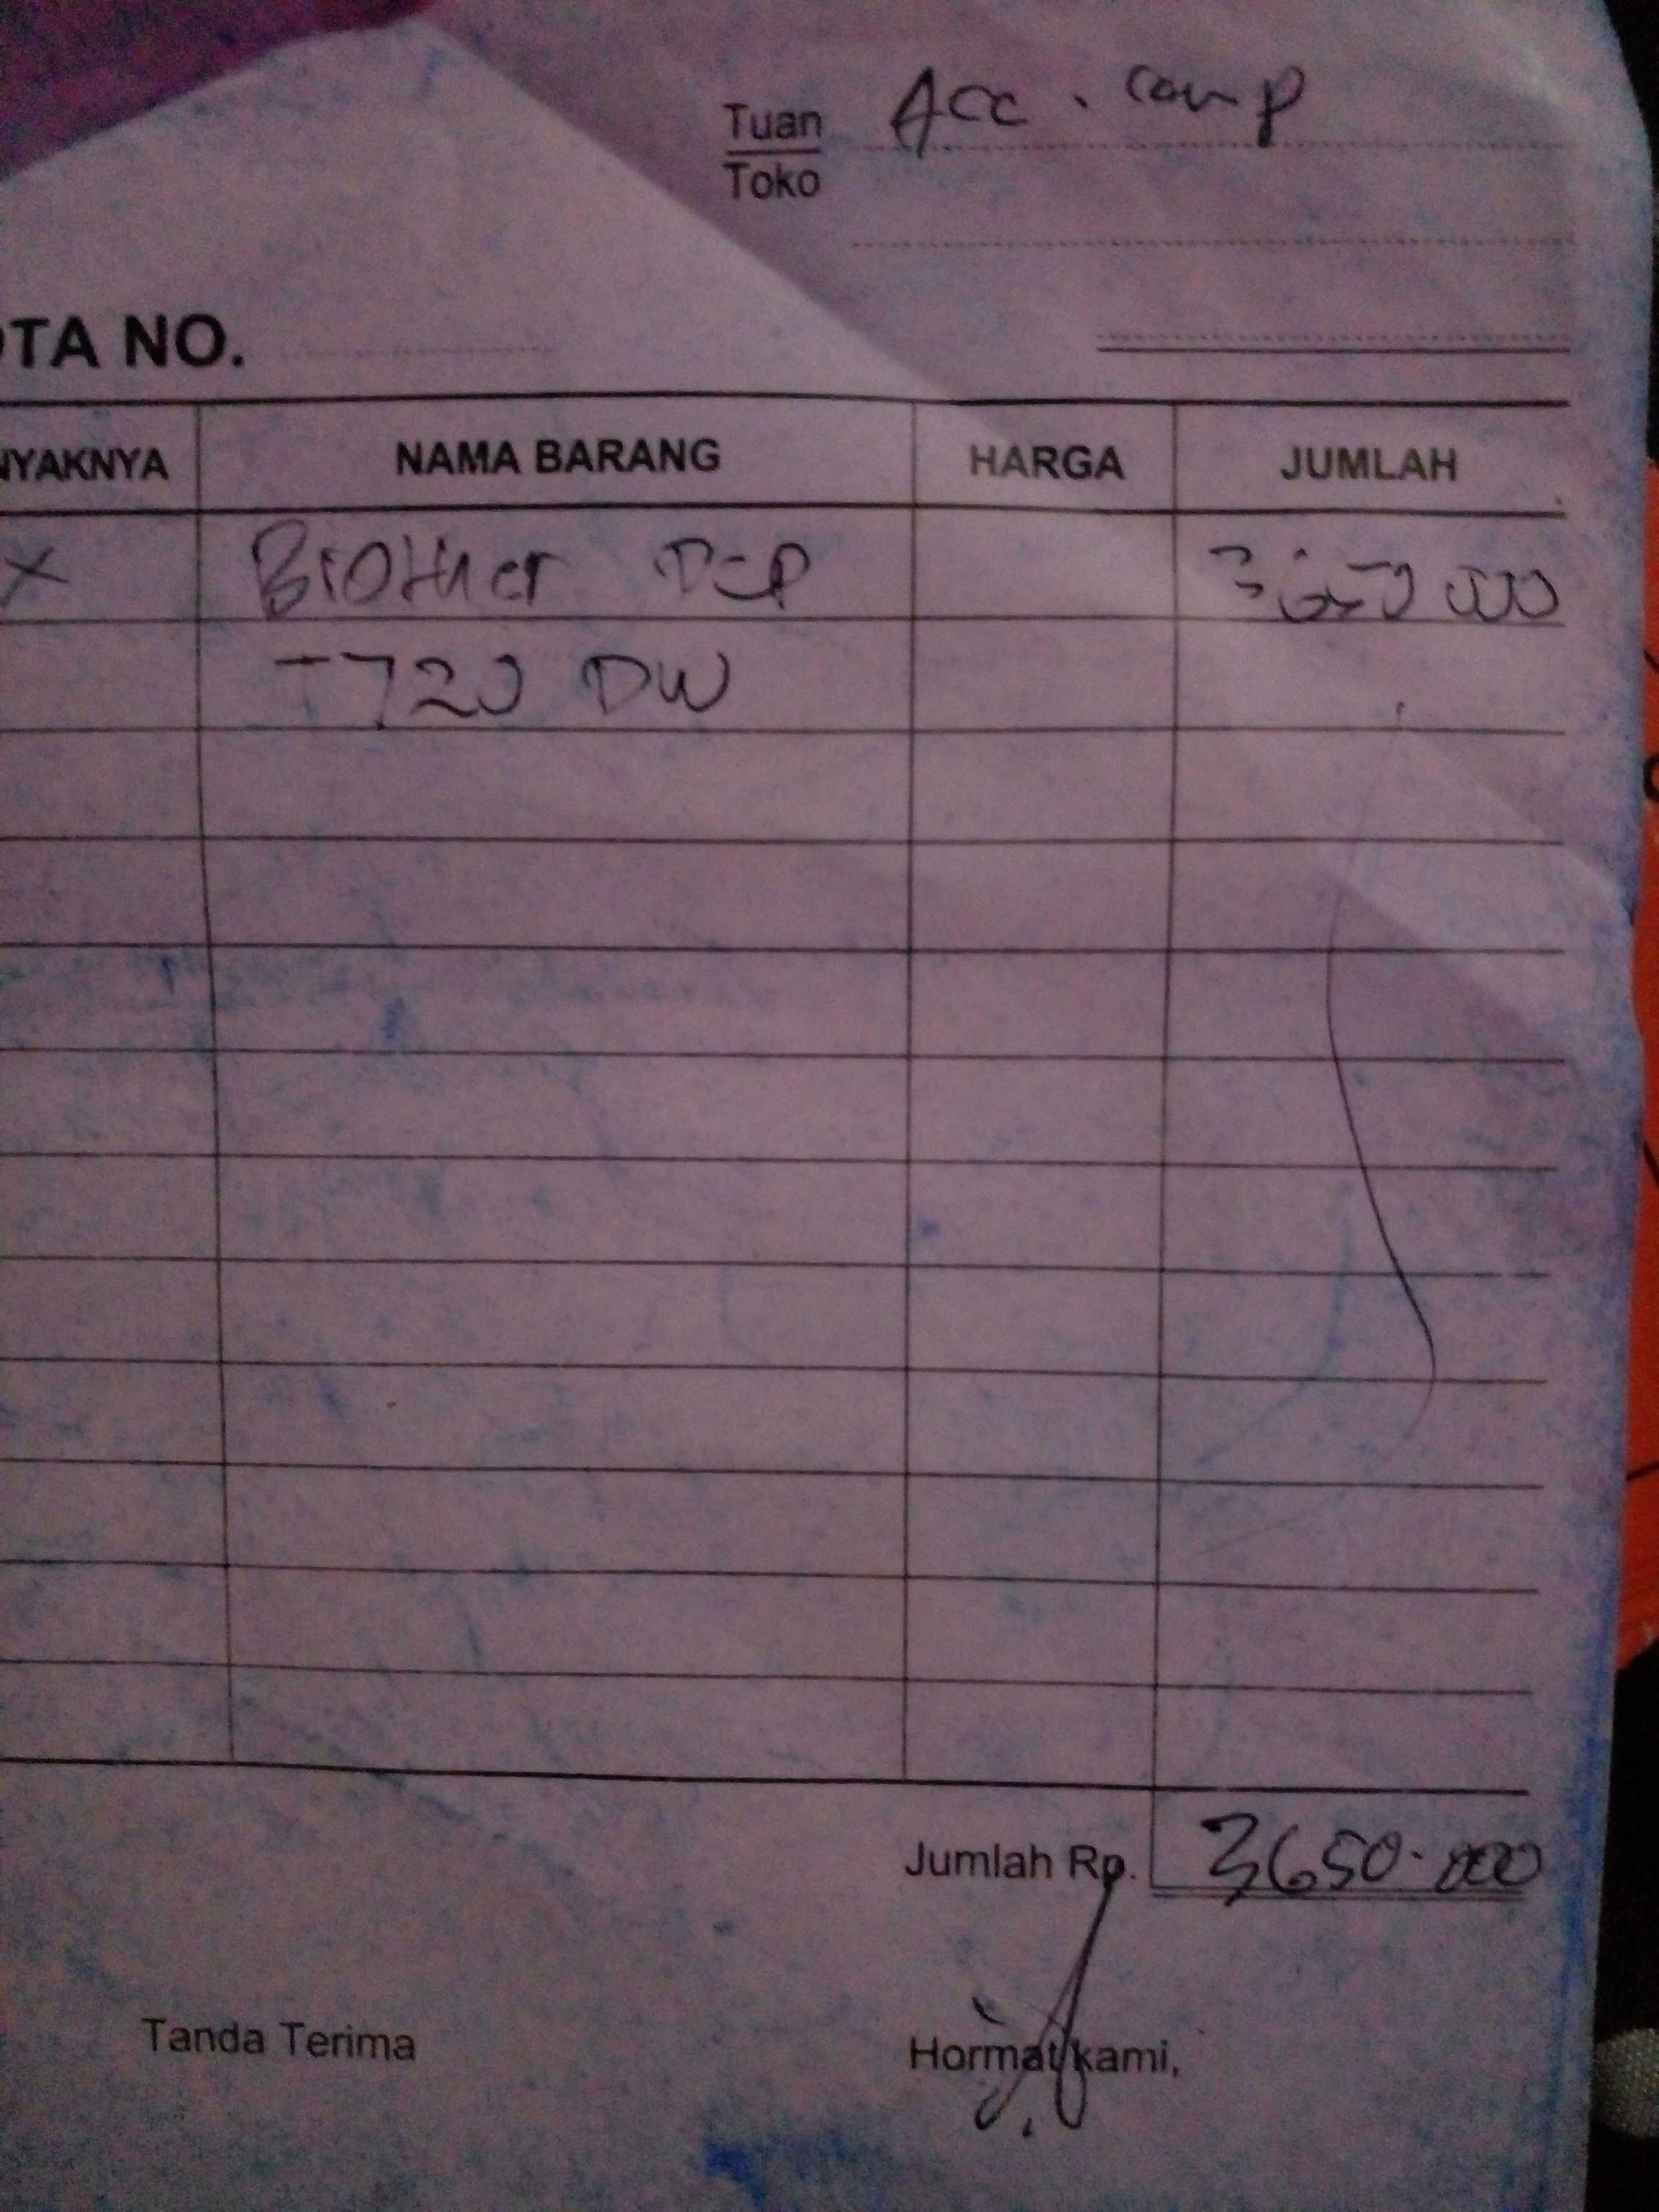 Tuan Acc. comp
Toko
OTA NO.
NYAKNYA NAMA BARANG HARGA JUMLAH
X Brother DCP 3.650.000
T720 DW
Jumlah Rp. 3650.000
Tanda Terima Hormat kami,